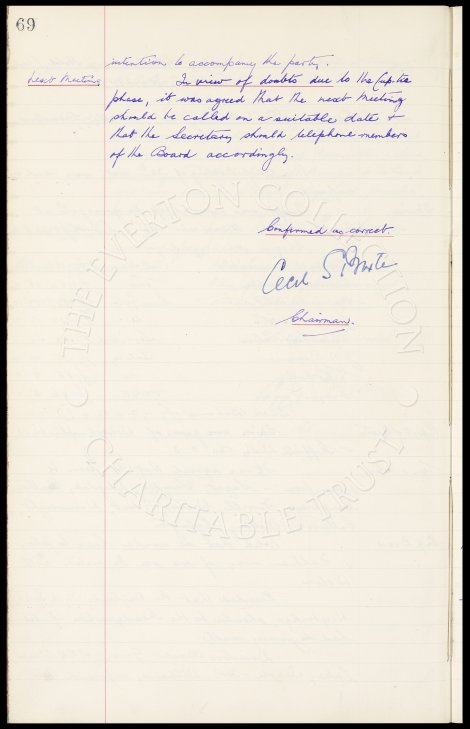 69
intention to accompany the party.
Next Meeting
In view of doubts due to the Cup-tie
phase, it was agreed that the next Meeting
should be called on a suitable date +
that the Secretary should telephone members
of the Board accordingly.
Confirmed as correct.
Cecil S
Chairman.
THE EVERTON COLLECTION
CHARITABLE TRUST